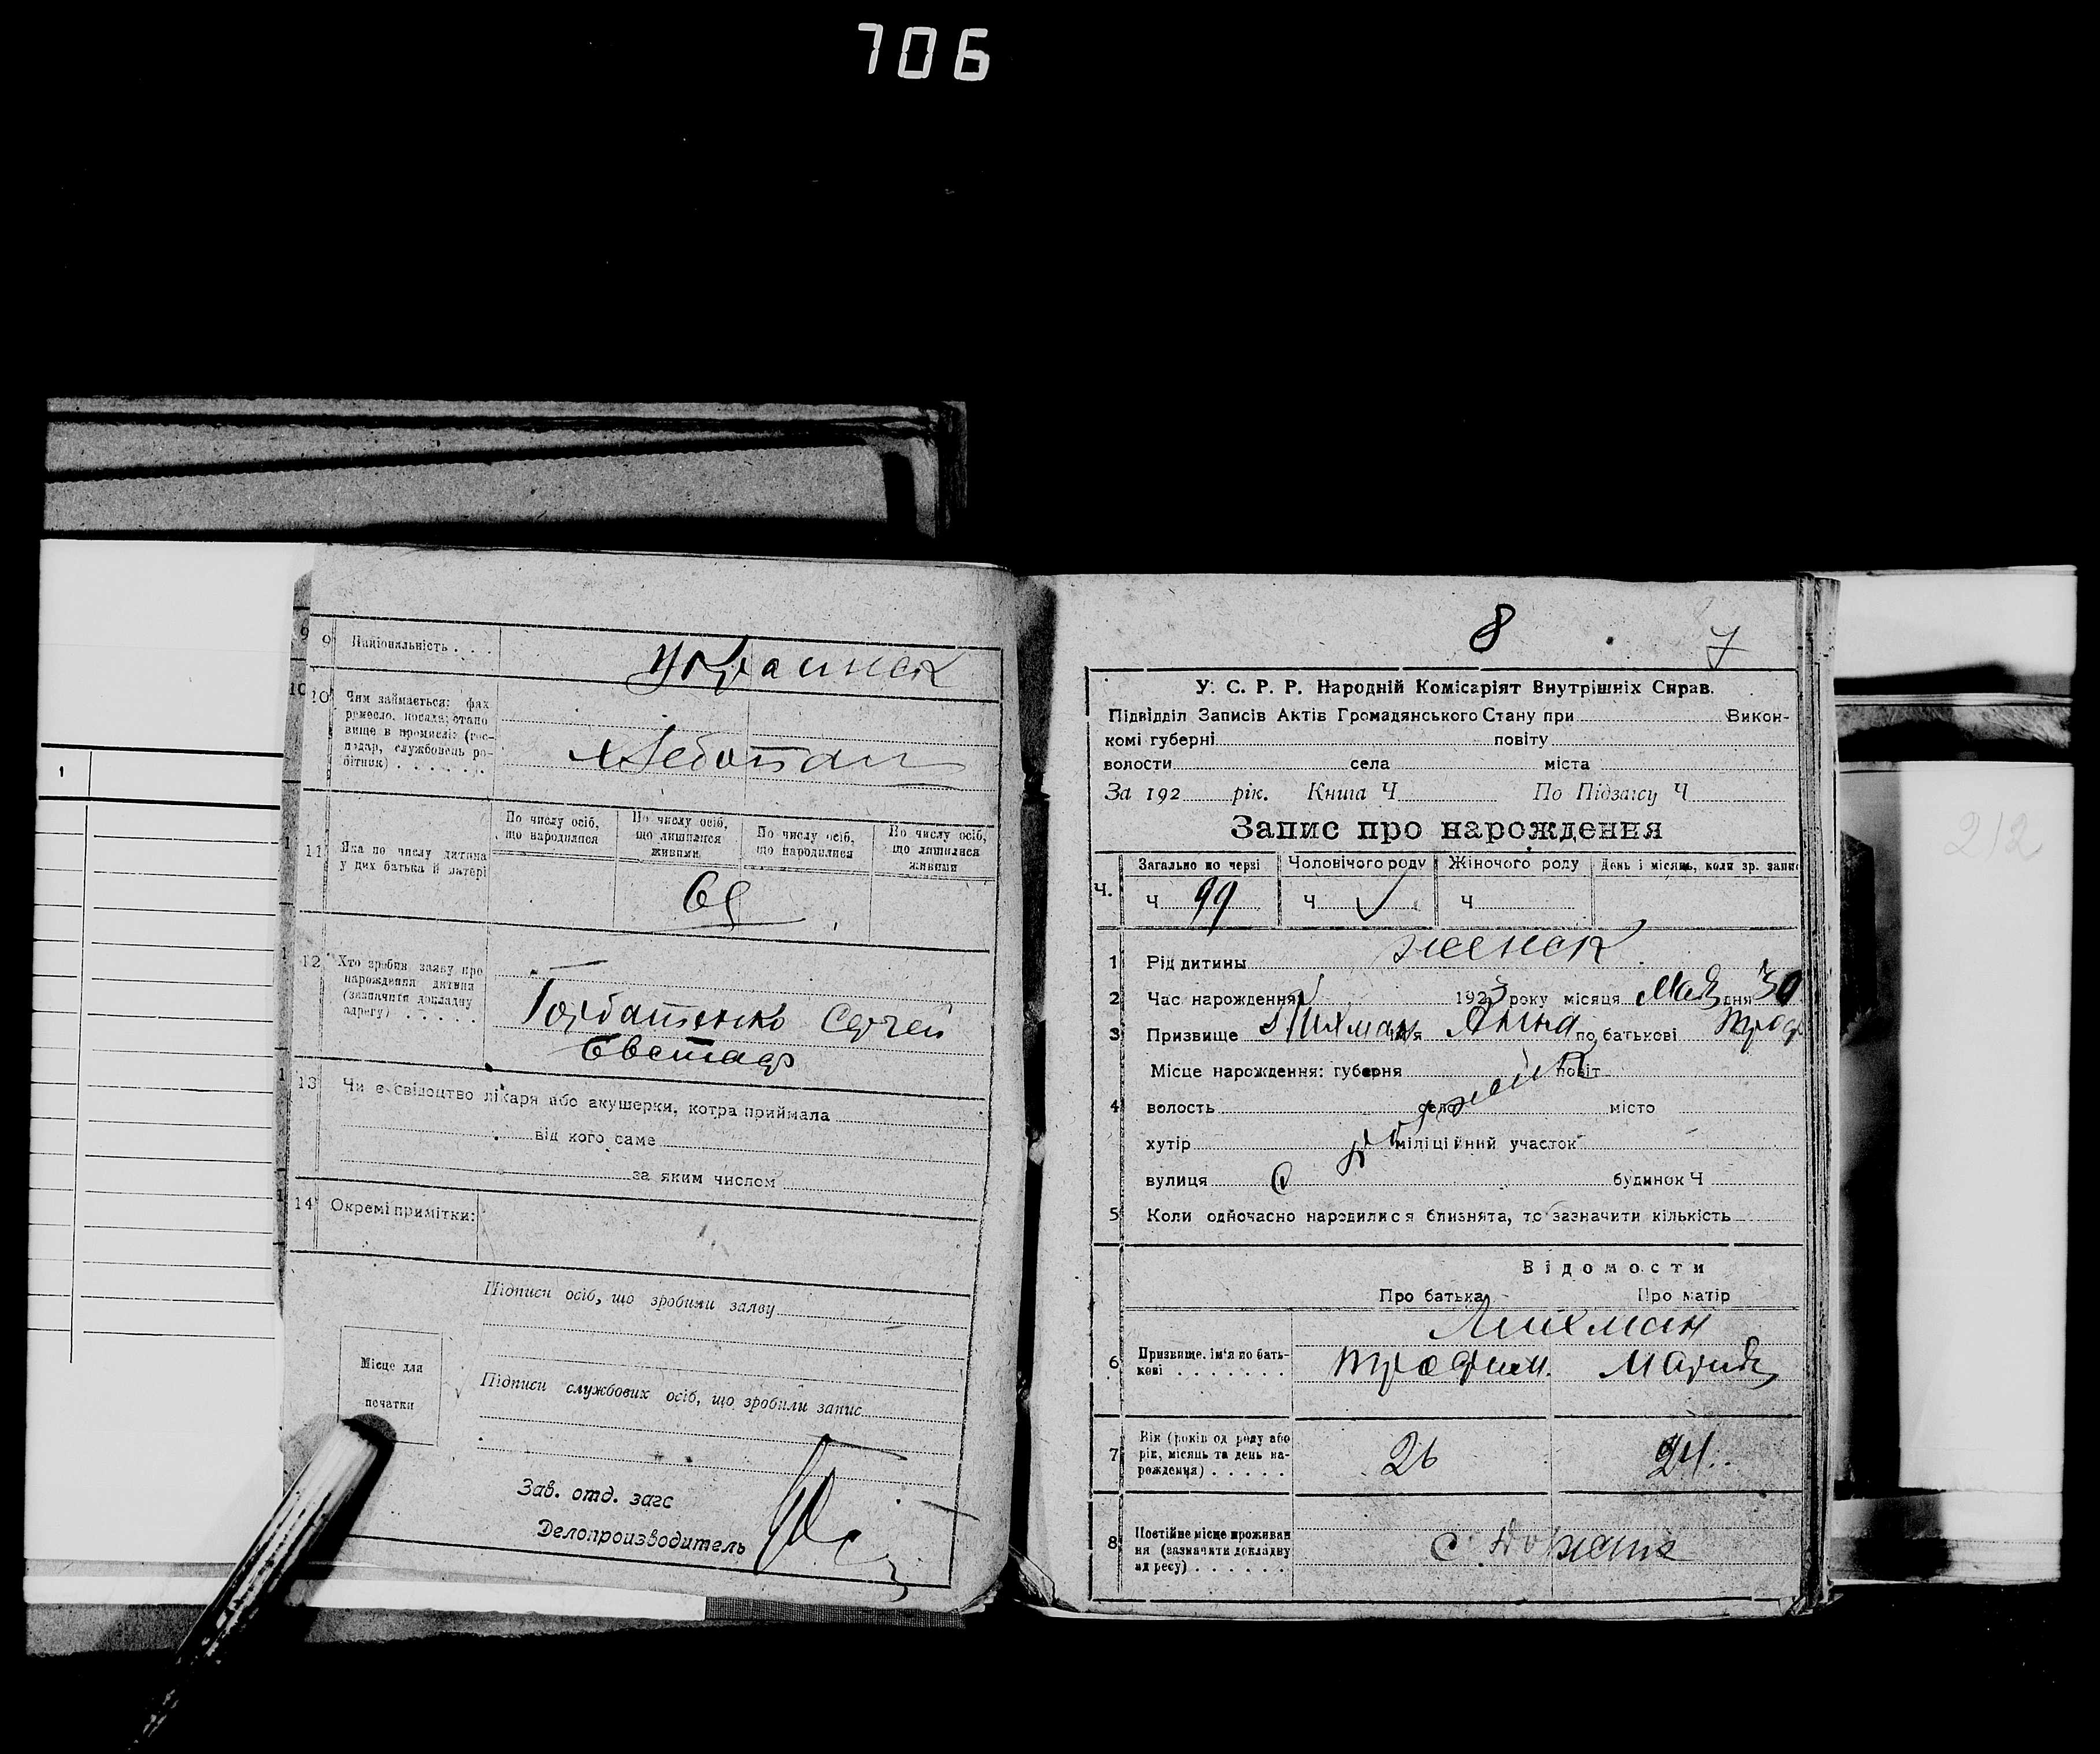 706
9 Національність . . .
Украинск
10 Чим займається: фах
ремесло, посада; стано
вище в промислі: (гос-
подар, службовець ро-
бітник) . . . . . .
хлебопаш
11 Яка по числу дитина
у цих батька й матері
По числу осіб,
що народилися
По числу осіб,
що лишилися
живими
По числу осіб,
що народилися
По числу осіб,
що лишилися
живими
12 Хто зробив заяву про
нарождення дитини
(зазначити докладну
адресу) . . . . .
Горбатенко Сергей
Евстаф
13 Чи є свідоцтво лікаря або акушерки, котра приймала
від кого саме
за яким числом
14 Окремі примітки:
Підписи осіб, що зробили заяву
Місце для
печатки
Підписи службових осіб, що зробили запис
Зав. отд. загс
Делопроизводитель
1
8
7
У. С. Р. Р. Народній Комісаріят Внутрішніх Справ.
Підвідділ Записів Актів Громадянського Стану при Викон-
комі губерні повіту
волости села міста
За 192 рік. Книга Ч По Підзагсу Ч
Запис про нарождення
Ч.
Загально по черзі
Чоловічого роду
Жіночого роду
День і місяць, коли зр. запис
Ч 99 Ч Ч
1 Рід дитины женск
2 Час нарождення 1923 року місяця Мая дня 30
3 Призвище Лихман ім'я Анна по батькові Троф
Місце нарождення: губерня повіт
4 волость село місто
хутір міліційний участок
вулиця будинок Ч
5 Коли одночасно народилися близнята, то зазначити кількість
Відомости
Про батька Про матір
Лихман
6 Призвище, ім'я по бать-
кові . . . . . . .
Трофим. Мария
7 Вік (років од роду або
рік, місяць та день на-
рождення) . . . . .
26 24
8 Постійне місце проживан
ня (зазначити докладну
адресу) . . . . . .
212